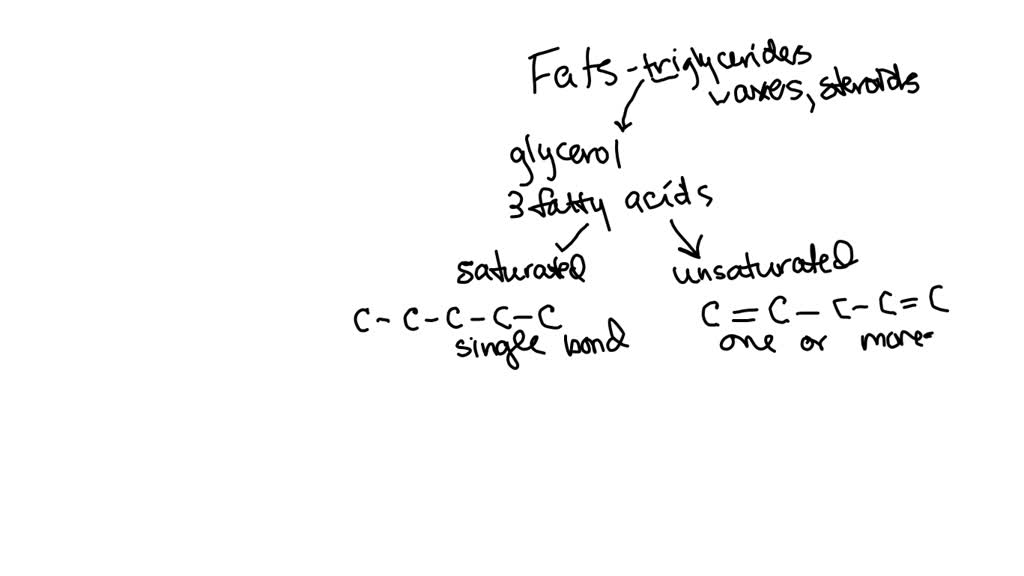 Fats - triglycerides
waxes, steroids
glycerol
3 fatty acids
saturated unsaturated
C - C - C - C - C C = C - C - C = C
single bond one or more